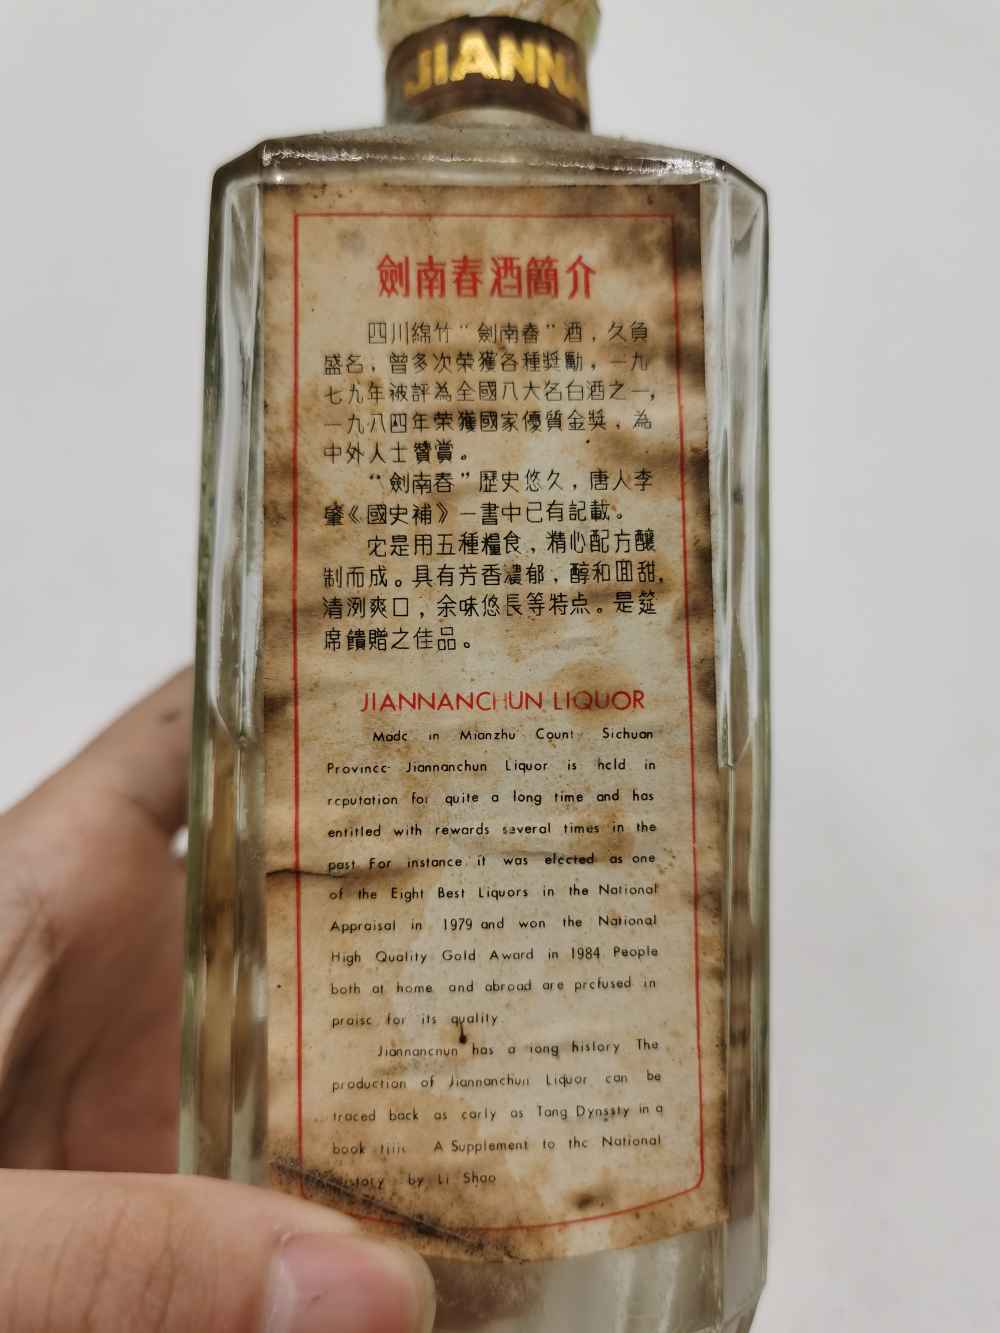 JIANNA
劍南春酒簡介
四川綿竹“劍南春”酒，久負
盛名，曾多次荣獲各種獎勵，一九
七九年被評為全國八大名白酒之一，
一九八四年荣獲國家優質金獎，為
中外人士贊賞。
“劍南春”歷史悠久，唐人李
肇《國史補》一書中已有記載。
它是用五種糧食，精心配方釀
制而成。具有芳香濃郁，醇和回甜，
清洌爽口，余味悠長等特点。是筵
席饋贈之佳品。
JIANNANCHUN LIQUOR
Made in Mianzhu Count Sichuan
Province Jiannanchun Liquor is held in
reputation for quite a long time and has
entitled with rewards several times in the
past For instance it was elected as one
of the Eight Best Liquors in the National
Appraisal in 1979 and won the National
High Quality Gold Award in 1984 People
both at home and abroad are prefused in
praise for its quality.
Jiannanchun has a long history The
production of Jiannanchun Liquor can be
traced back as early as Tang Dynssty in a
book A Supplement to the National
istory by Li Shao